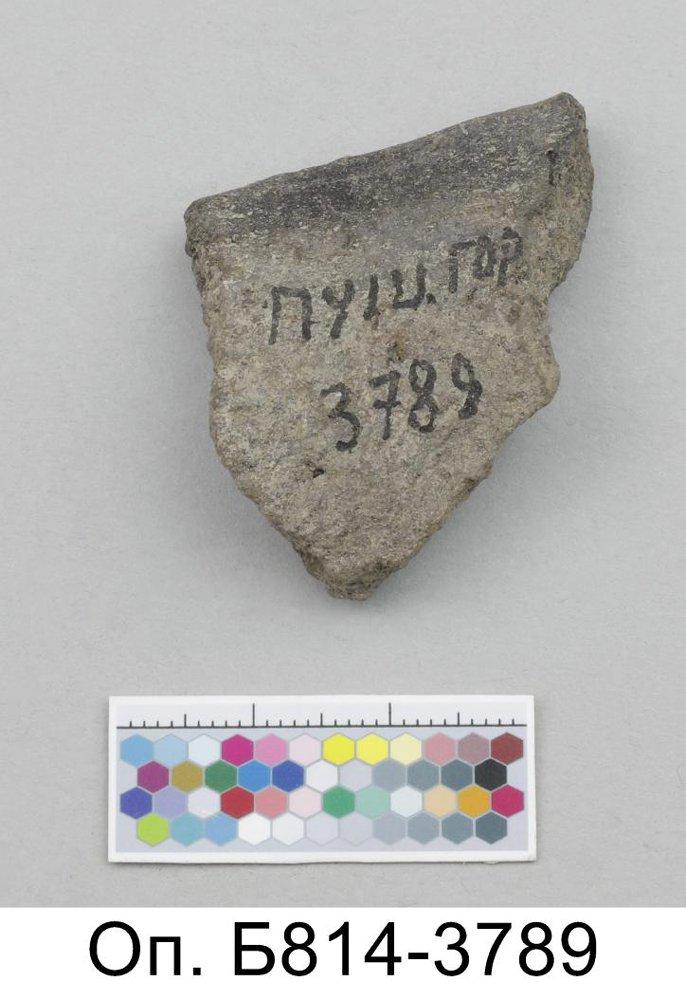 ПУШ. ГОР
3789
Оп. Б814-3789